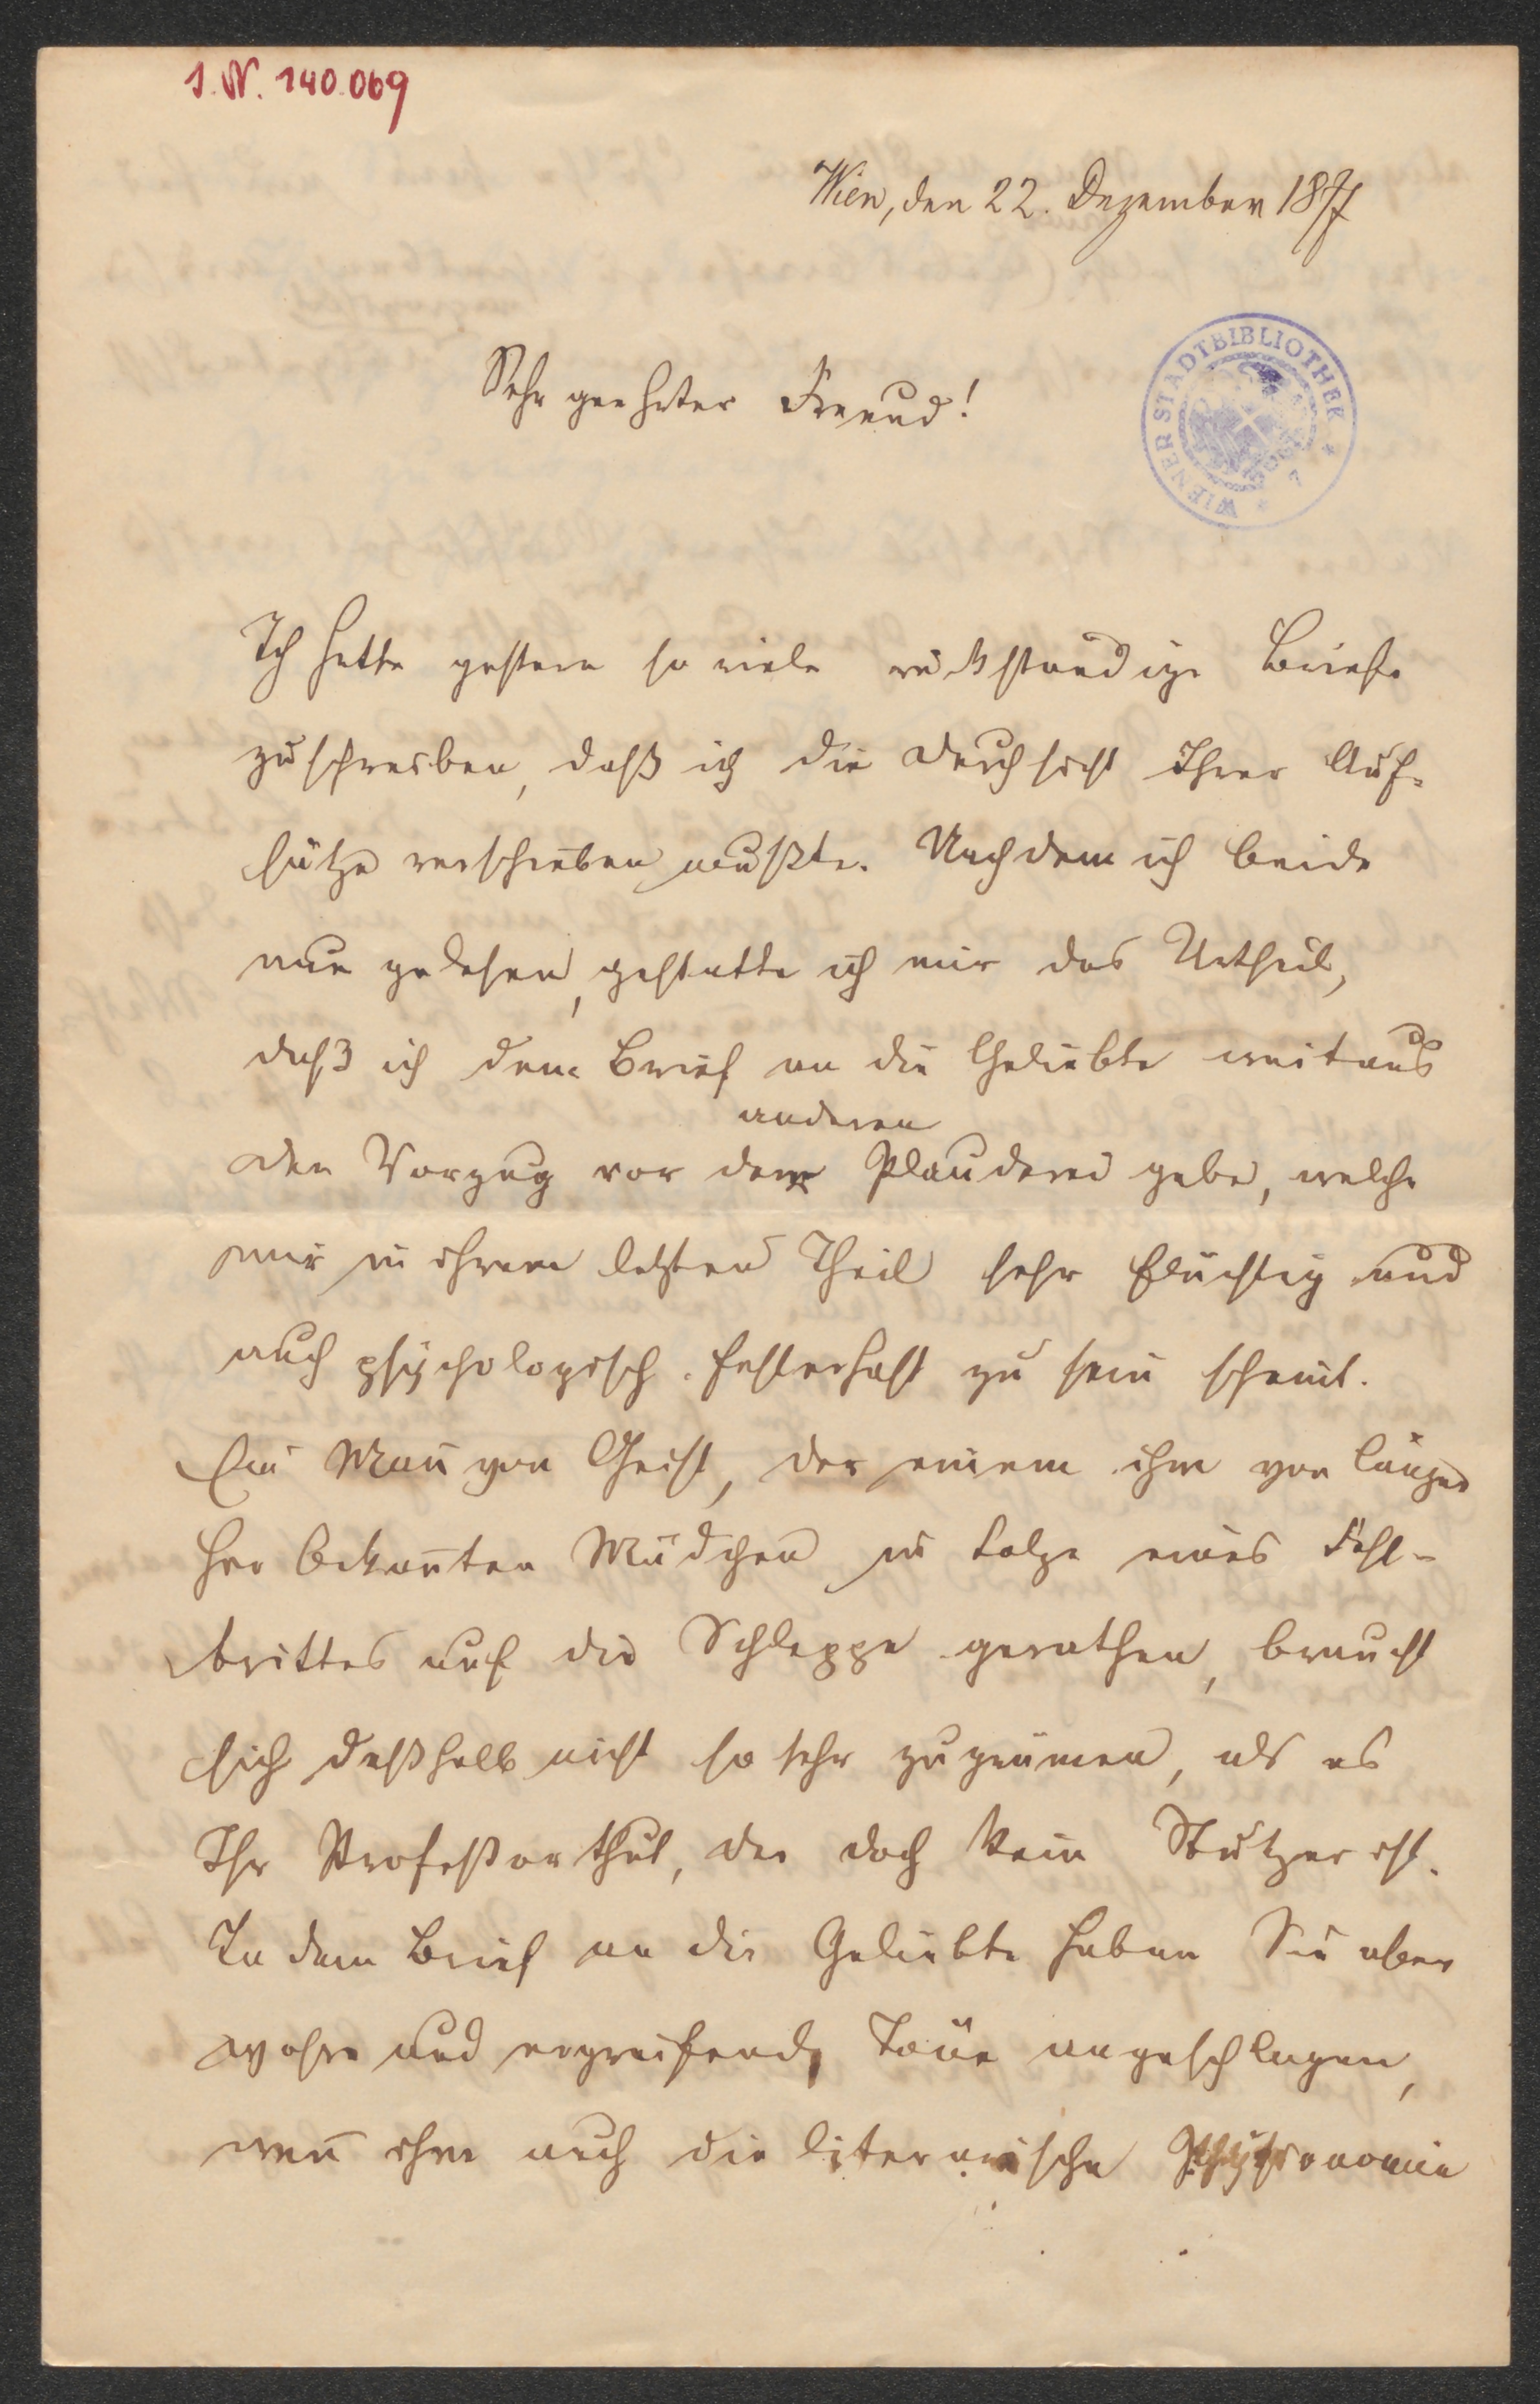 I.N. 140.069
Wien, den 22. Dezember 1877
WIENER STADTBIBLIOTHEK
Sehr geehrter Freund!
Ich hatte gestern so viele rückständige Briefe
zuschreiben, daß ich die Durchsicht Ihrer Auf-
sätze verschieben mußte. Nachdem ich beide
nun gelesen, gestatte ich mir das Urtheil,
daß ich dem Brief an die Geliebte weitaus
anderen
den Vorzug vor der Plauderei gebe, welche
mir in ihrem letzten Theil sehr flüchtig und
auch psychologisch fehlerhaft zu sein scheint.
Ein Mañ von Geist, der einem ihm von länger
her bekañten Mädchen in Folge eines Fehl-
trittes auf die Schleppe gerathen, braucht
sich deßhalb nicht so sehr zu grämen, als es
Ihr Professor thut, der doch kein Stutzer ist.
In dem Brief an die Geliebte haben Sie aber
wahre und ergreifende Töne angeschlagen,
weñ ihm auch die literarische Physionomie